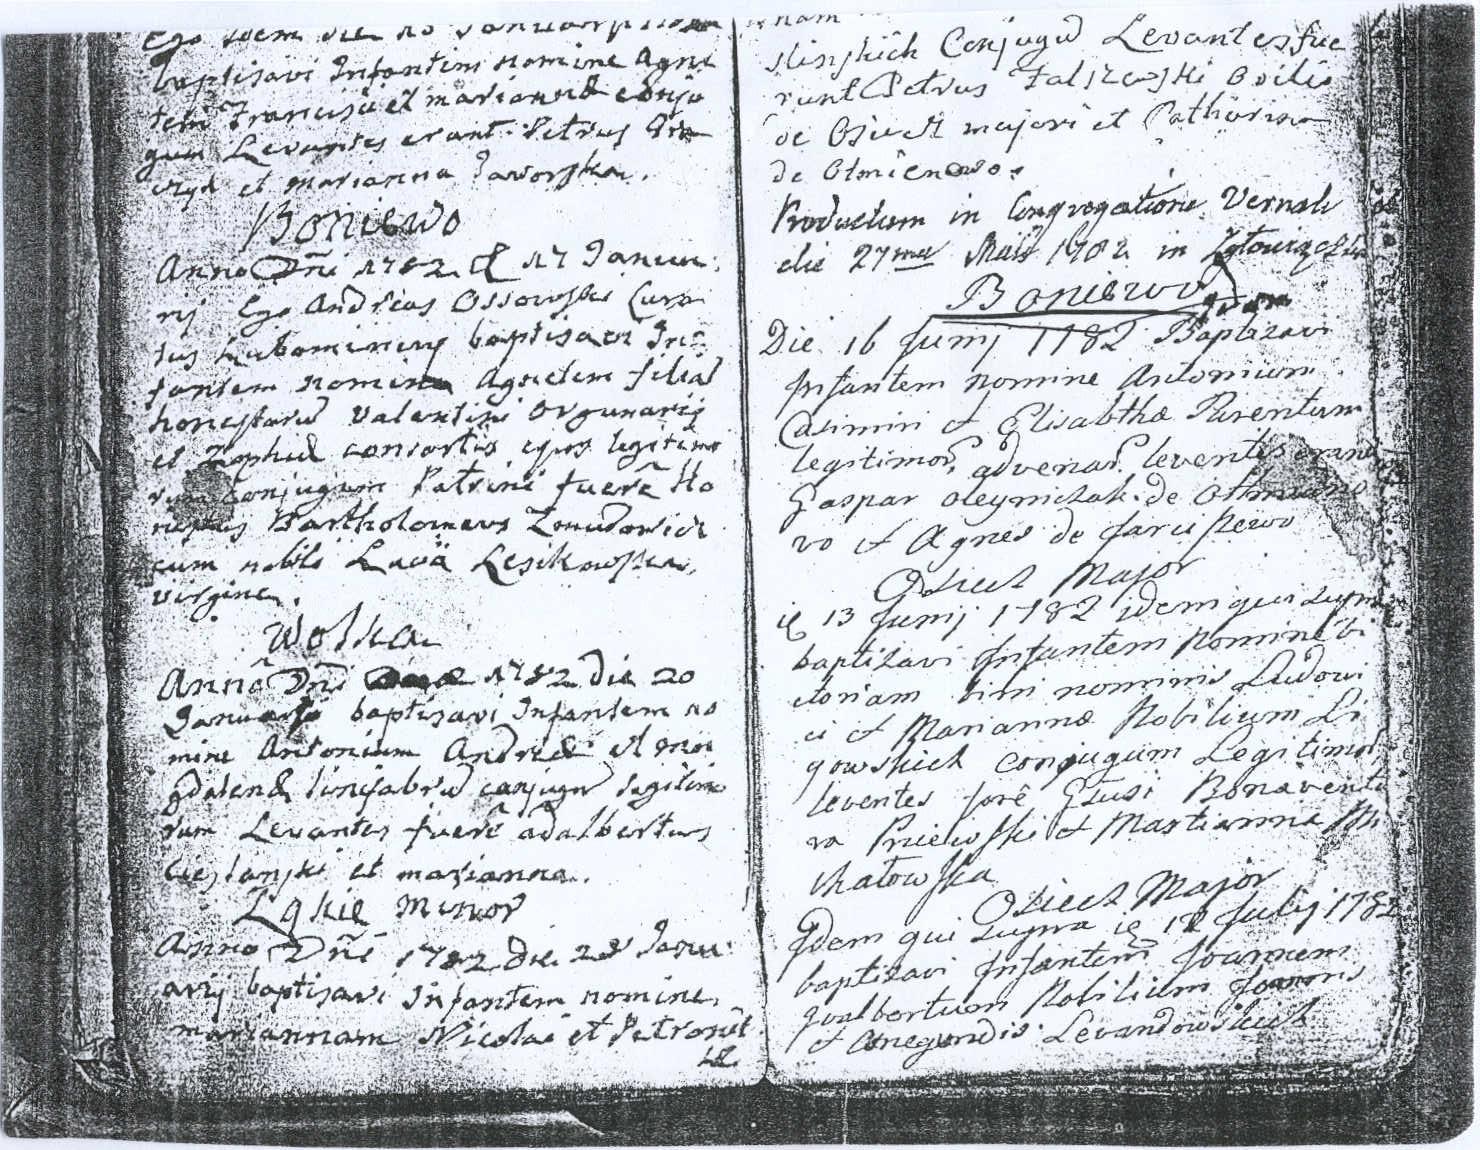 Ego idem die 10 Januarii
baptisavi Infantem nomine Agne
tem Francisci et mariannæ conju
gum Levantes erant Petrus
et Marianna Jaworska.
Boniewo
Anno Dni 1782 d 17 Janua
rij Ego Andreas Ossowski Cura
tus Lubominensis baptisavi In
fantem nomine Agnetem filiã
honestorũ Valentini Organarij
et Zophiæ consortis ejus legitimo
rum Conjugum Patrini fuerẽ Ho
nestus Bartholomeus
cum nobili Luciã
virgine.
Wolka
Anno Dni 1782 die 20
Januarij baptisavi Infantem no
mine Antonium Andreæ et ma
gdalenæ conjugũ legitimo
rum Levantes fuerẽ adalbertus
et marianna.
Ląkie Minor
Anno Dni 1782 die 28 Janu
arij baptisavi Infantem nomine
mariannam Nicolai et Petronel
læ
Conjugũ Levantes fue
runt Petrus Falszewski
de Osiech majori et Catharina
de Otmienowo.
Productum in Congregatione Vernali
die 27ma Maii 1782 in
Boniewo
Die 16 Junij 1782 Baptizavi
Infantem nomine Antonium
Casimiri et Elisabthæ Parentum
legitimor, advenar, leventes erant
Gaspar Oleyniczak de Othmiano
vo et Agnes de Jarcisewo
Osiecz Major
ie 13 Junij 1782 idem qui supra
baptizavi Infantem Nomine Vi
ctoriam bini nominis Ludovi
ci et Mariannæ Nobilium Li
gowskich conjugum Legitimor,
leventes forẽ Bonaventu
ra et Marianna
Osiecz Major
Idem qui supra ie 12 Julij 1782
baptizavi Infantem Joannem
Gvalbertum Nobilium Joannis
et Cunegundis Levandowskich